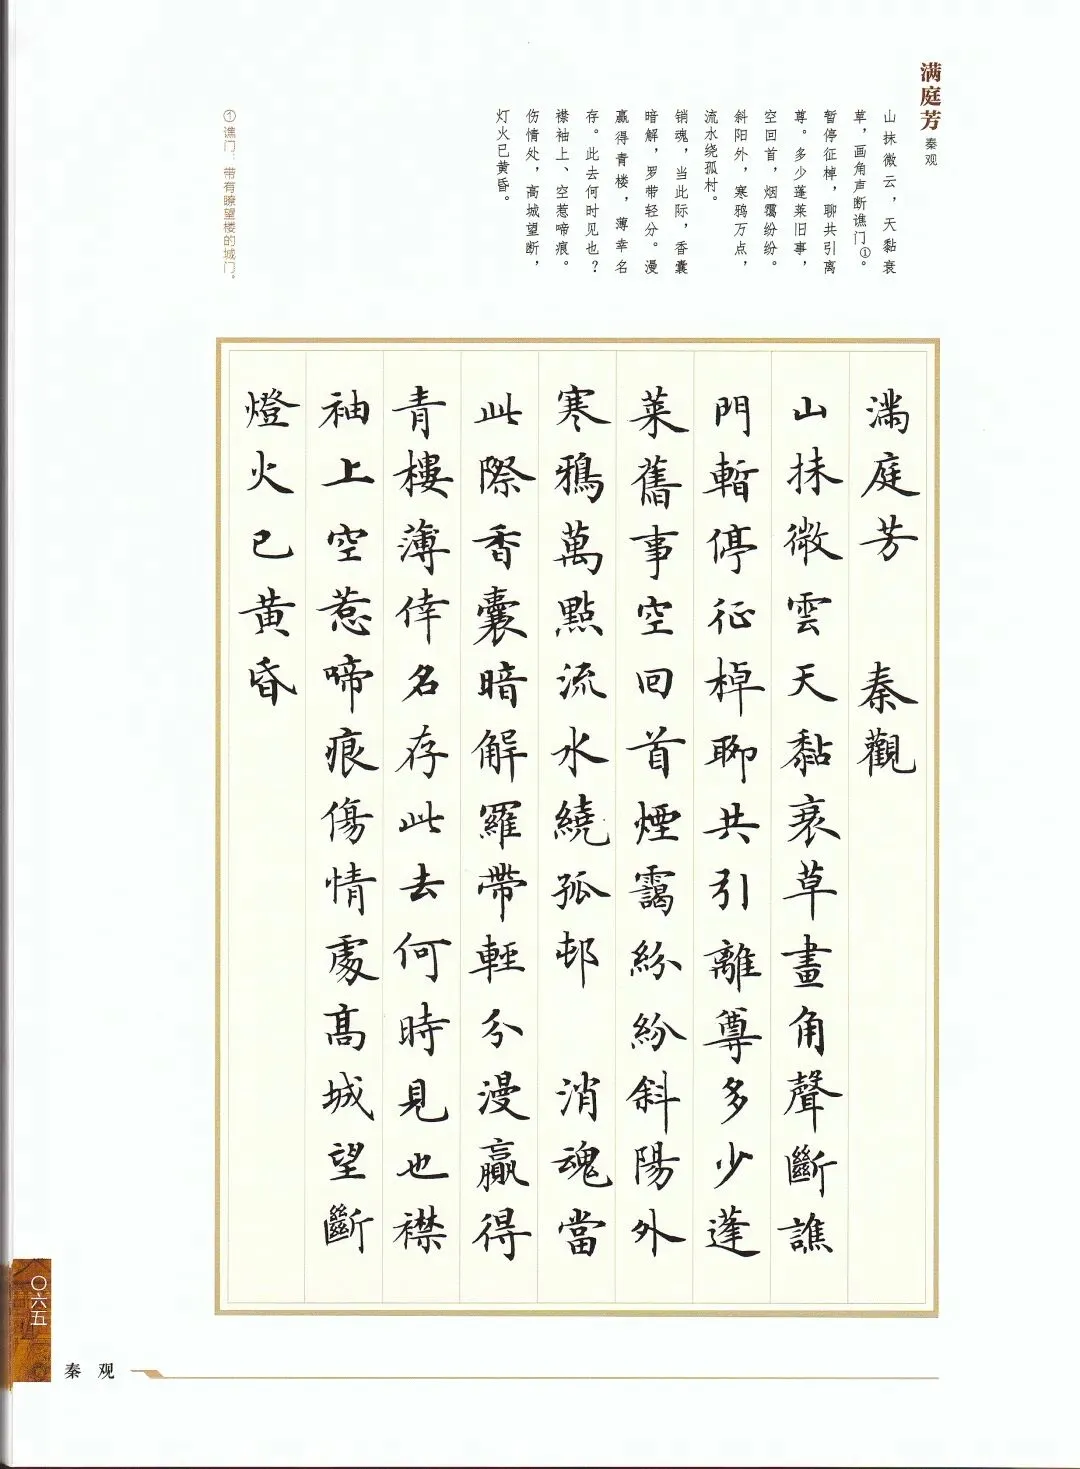 满庭芳
秦观
山抹微云，天黏衰
草，画角声断谯门①。
暂停征棹，聊共引离
尊。多少蓬莱旧事，
空回首，烟霭纷纷。
斜阳外，寒鸦万点，
流水绕孤村。
销魂，当此际，香囊
暗解，罗带轻分。漫
赢得青楼，薄幸名
存。此去何时见也？
襟袖上、空惹啼痕。
伤情处，高城望断，
灯火已黄昏。
①谯门：带有瞭望楼的城门。
滿庭芳 秦觀
山抹微雲天黏衰草畫角聲斷譙
門暫停征棹聊共引離尊多少蓬
萊舊事空回首煙靄紛紛斜陽外
寒鴉萬點流水繞孤邨 消魂當
此際香囊暗解羅帶輕分漫贏得
青樓薄倖名存此去何時見也襟
袖上空惹啼痕傷情處高城望斷
燈火已黃昏
〇六五
秦观